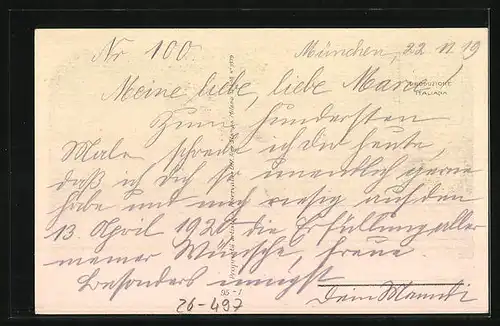 Nr 100.
München, 22 11 19
Meine liebe, liebe
PRODUZIONE
ITALIANA
Zum hundersten
Male schreibe ich dir heute,
daß ich Dich so unendlich gerne
habe und mich riesig auf den
13 April 1920 die Erfüllung aller
meiner Wünsche, freue
Besonders innigst
Dein
95-1
26-497